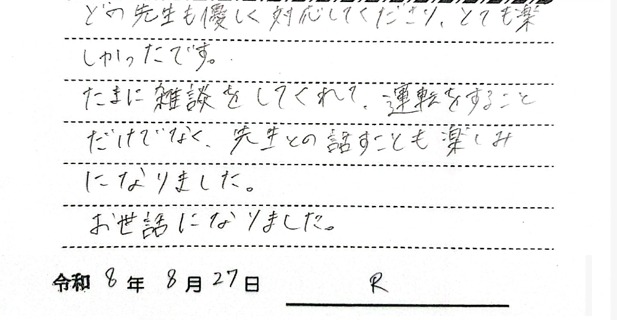 どの先生も優しく対応してくださり、とても楽
しかったです。
たまに雑談をしてくれて、運転をすること
だけでなく、先生との話すことも楽しみ
になりました。
お世話になりました。
令和 8 年 8 月 27 日 R